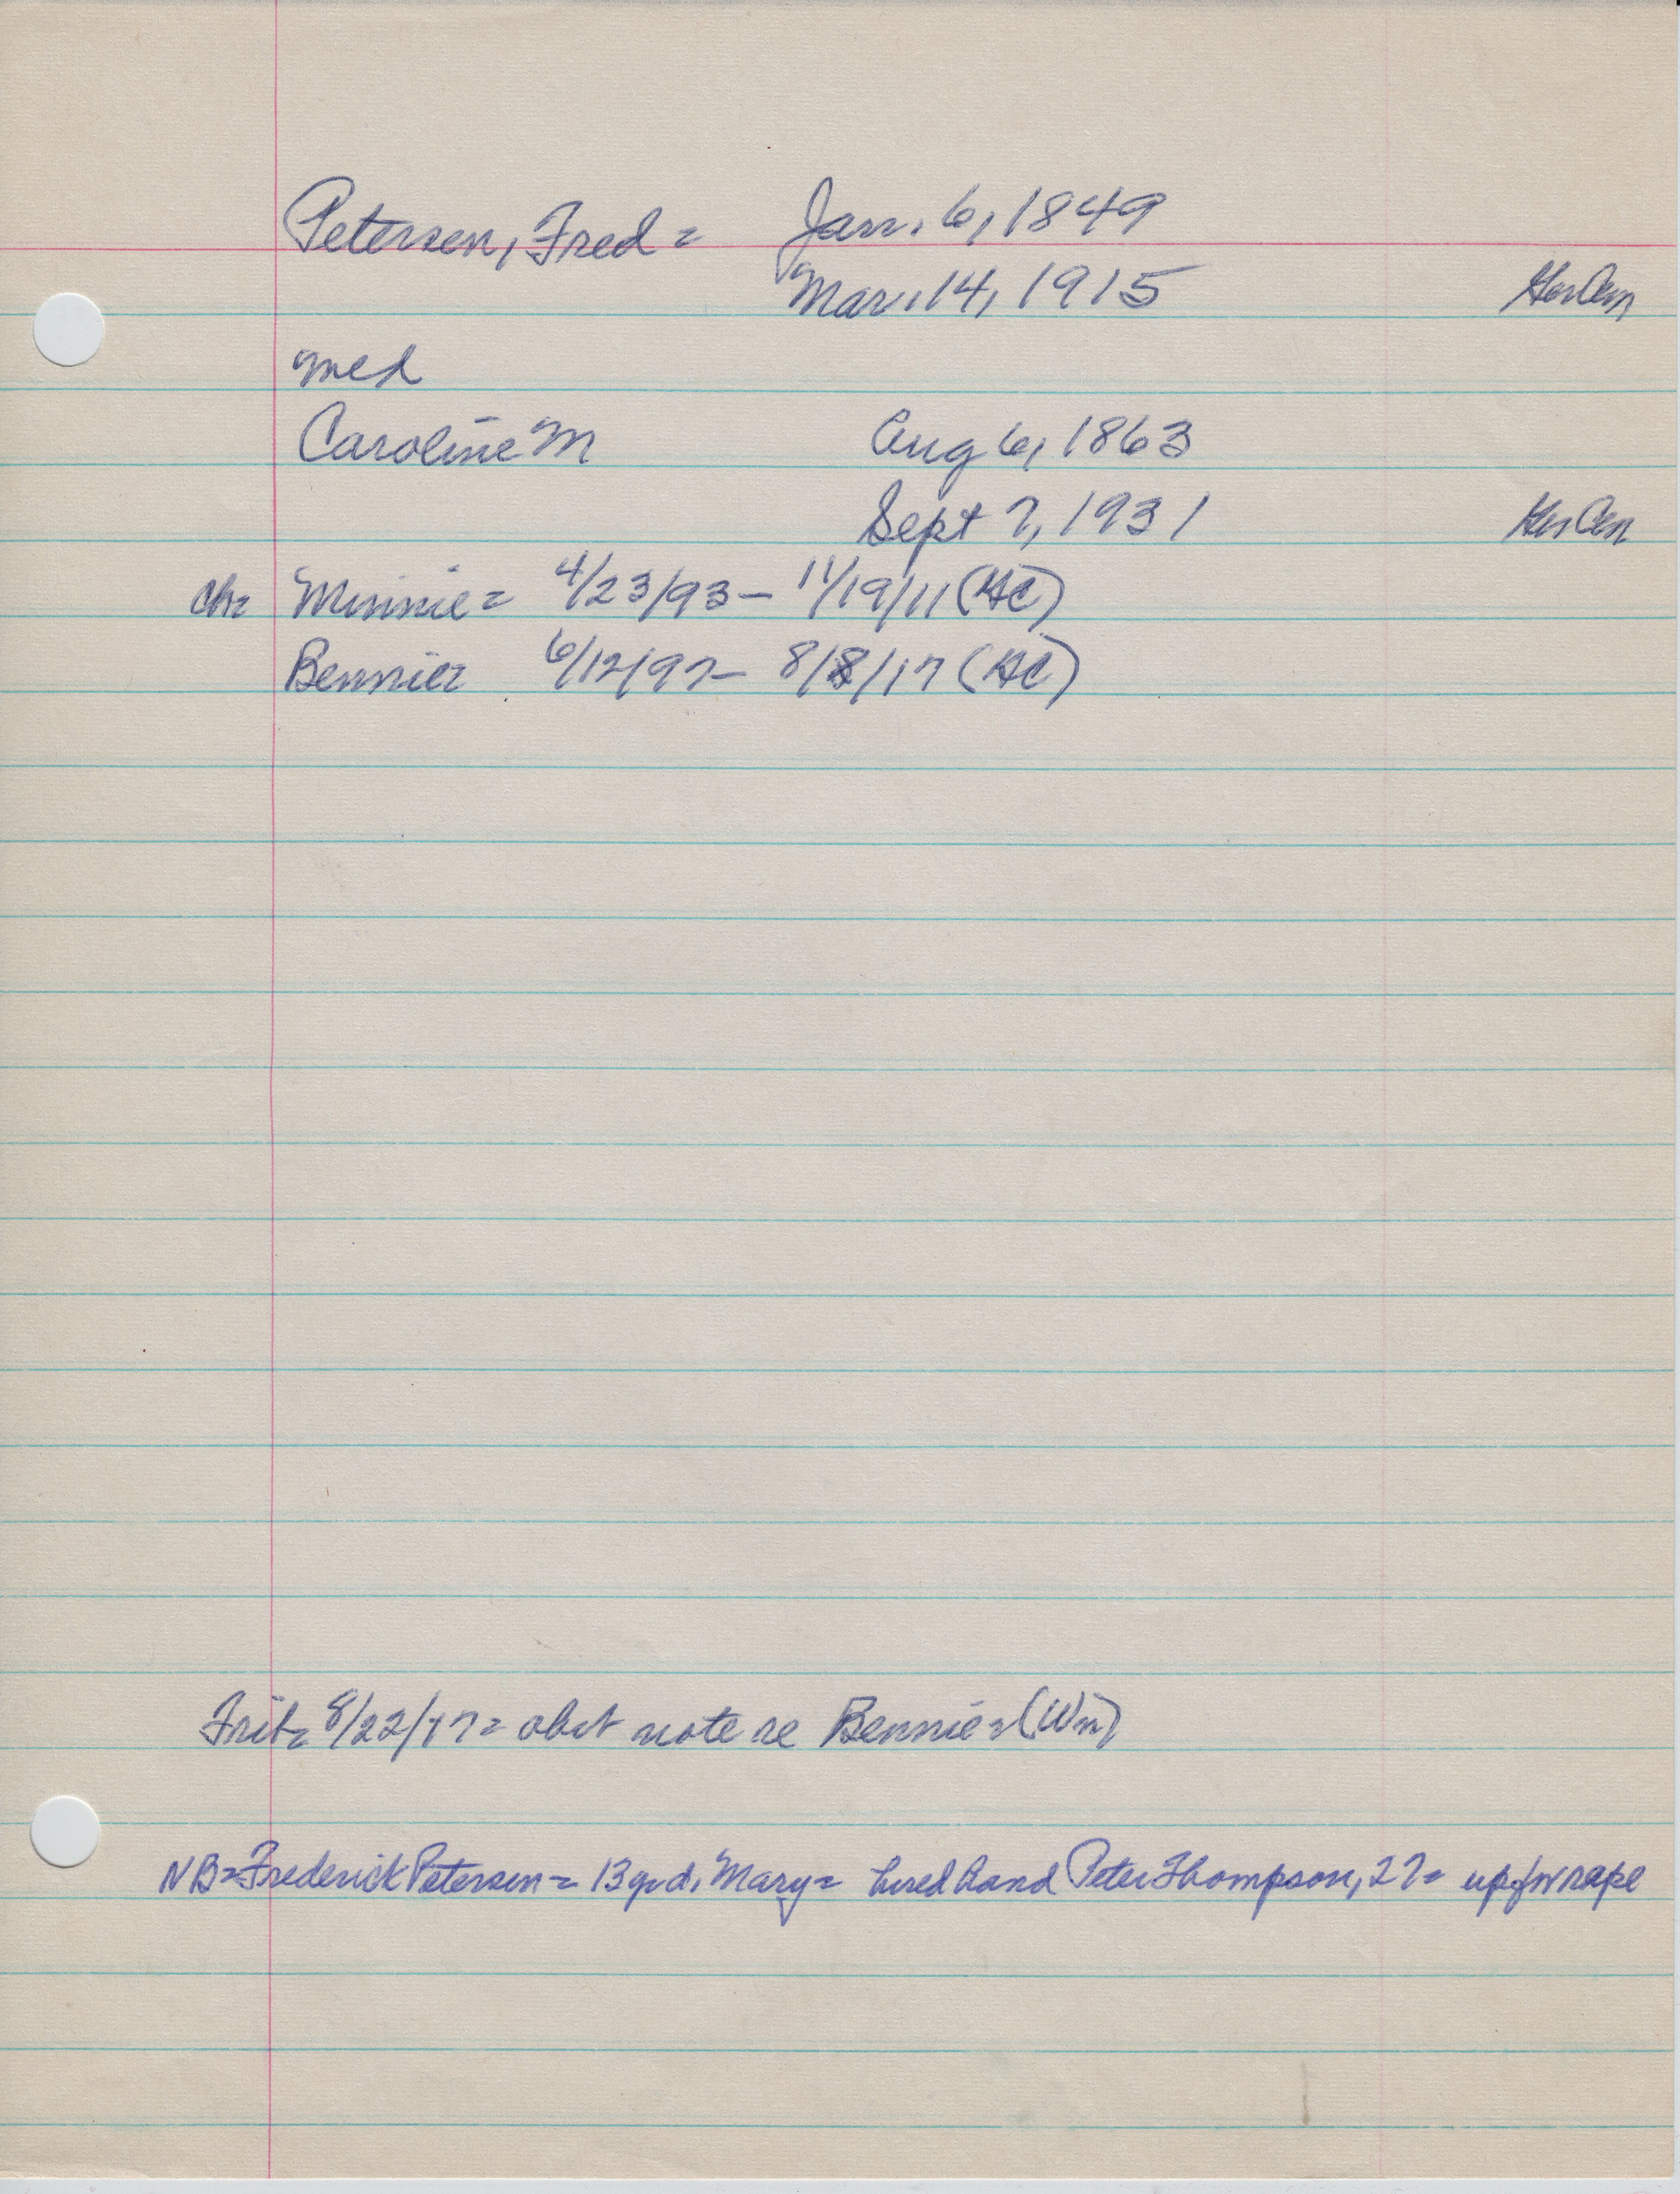 Petersen, Fred = Jan. 6, 1849
Mar. 14, 1915 Ger Cem
med
Caroline M Aug 6, 1863
Sept 7, 1931 Ger Cem
ch= Minnie = 4/23/93 – 11/19/11 (GC)
Bennie = 6/12/97 – 8/8/17 (GC)
Trib = 8/22/17 = obit note re Bennie = (Wm)
NB = Frederick Petersen = 13 yr d, Mary = hired hand Peter Thompson, 27 = up for rape